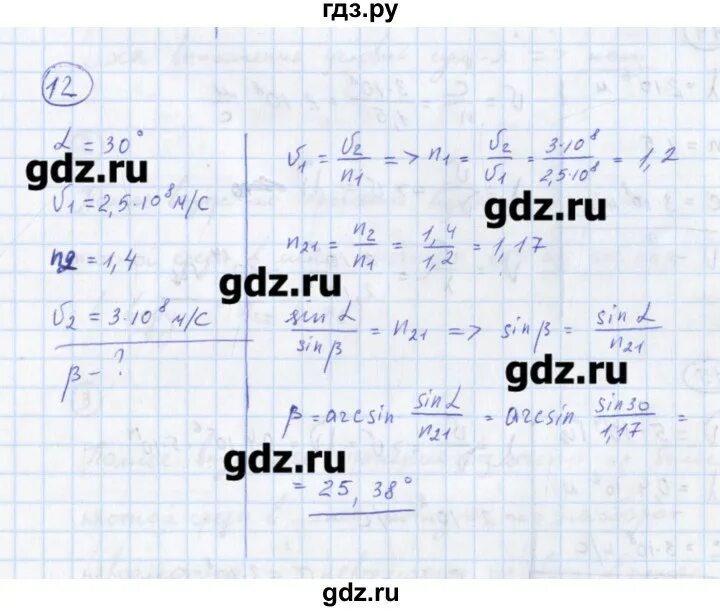 гдз.ру
12
α = 30°
gdz.ru
υ1 = 2,5·10^8 м/с
n2 = 1,4
υ2 = 3·10^8 м/с
β - ?
υ1 = υ2/n1 => n1 = υ2/υ1 = 3·10^8/2,5·10^8 = 1,2
gdz.ru
n21 = n2/n1 = 1,4/1,2 = 1,17
gdz.ru
sin α/sin β = n21 => sin β = sin α/n21
gdz.ru
β = arcsin sin α/n21 = arcsin sin 30/1,17 =
gdz.ru
= 25,38°
gdz.ru